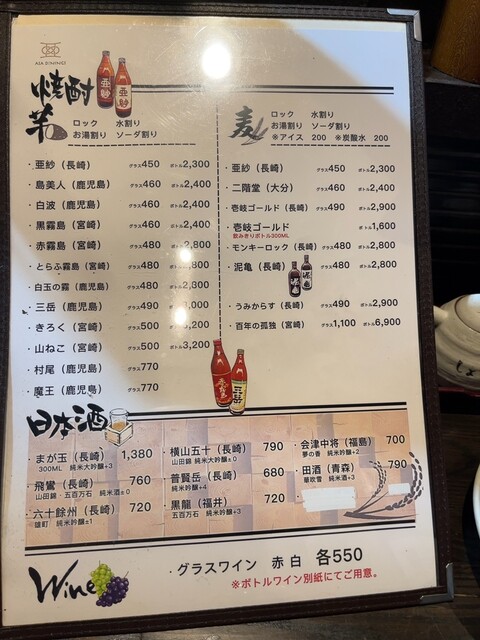 ASA DINING
焼酎
芋
ロック 水割り
お湯割り ソーダ割り
・亜紗（長崎） グラス450 ボトル2,300
・島美人（鹿児島） グラス460 ボトル2,400
・白波（鹿児島） グラス460 ボトル2,400
・黒霧島（宮崎） グラス460 ボトル2,400
・赤霧島（宮崎） グラス480 ボトル2,800
・とらふ霧島（宮崎） グラス480 2,800
・白玉の霧（鹿児島） グラス480
・三岳（鹿児島） グラス490
・きろく（宮崎） グラス500 3,200
・山ねこ（宮崎） グラス500 ボトル3,200
・村尾（鹿児島） グラス770
・魔王（鹿児島） グラス770
麦
ロック 水割り
お湯割り ソーダ割り
※アイス 200 ※炭酸水 200
・亜紗（長崎） グラス450 ボトル2,300
・二階堂（大分） グラス460 ボトル2,400
・壱岐ゴールド（長崎） グラス490 ボトル2,900
・壱岐ゴールド ボトル1,600
飲みきりボトル300ML
・モンキーロック（長崎） グラス480 ボトル2,800
・泥亀（長崎） グラス480 ボトル2,800
・うみからす（長崎） グラス490 ボトル2,900
・百年の孤独（宮崎） グラス1,100 ボトル6,900
日本酒
・まが玉（長崎） 1,380
300ML 純米大吟醸+3
・飛鸞（長崎） 760
山田錦・五百万石 純米酒±0
・六十餘州（長崎） 720
雄町 純米吟醸±1
・横山五十（長崎） 790
山田錦 純米大吟醸±0
・普賢岳（長崎） 680
純米吟醸+4
・黒龍（福井） 720
五百万石 純米吟醸+3
・会津中将（福島） 700
夢の香 純米吟醸+2
・田酒（青森） 790
華吹雪 純米酒+3
Wine
・グラスワイン 赤 白 各550
※ボトルワイン別紙にてご用意。